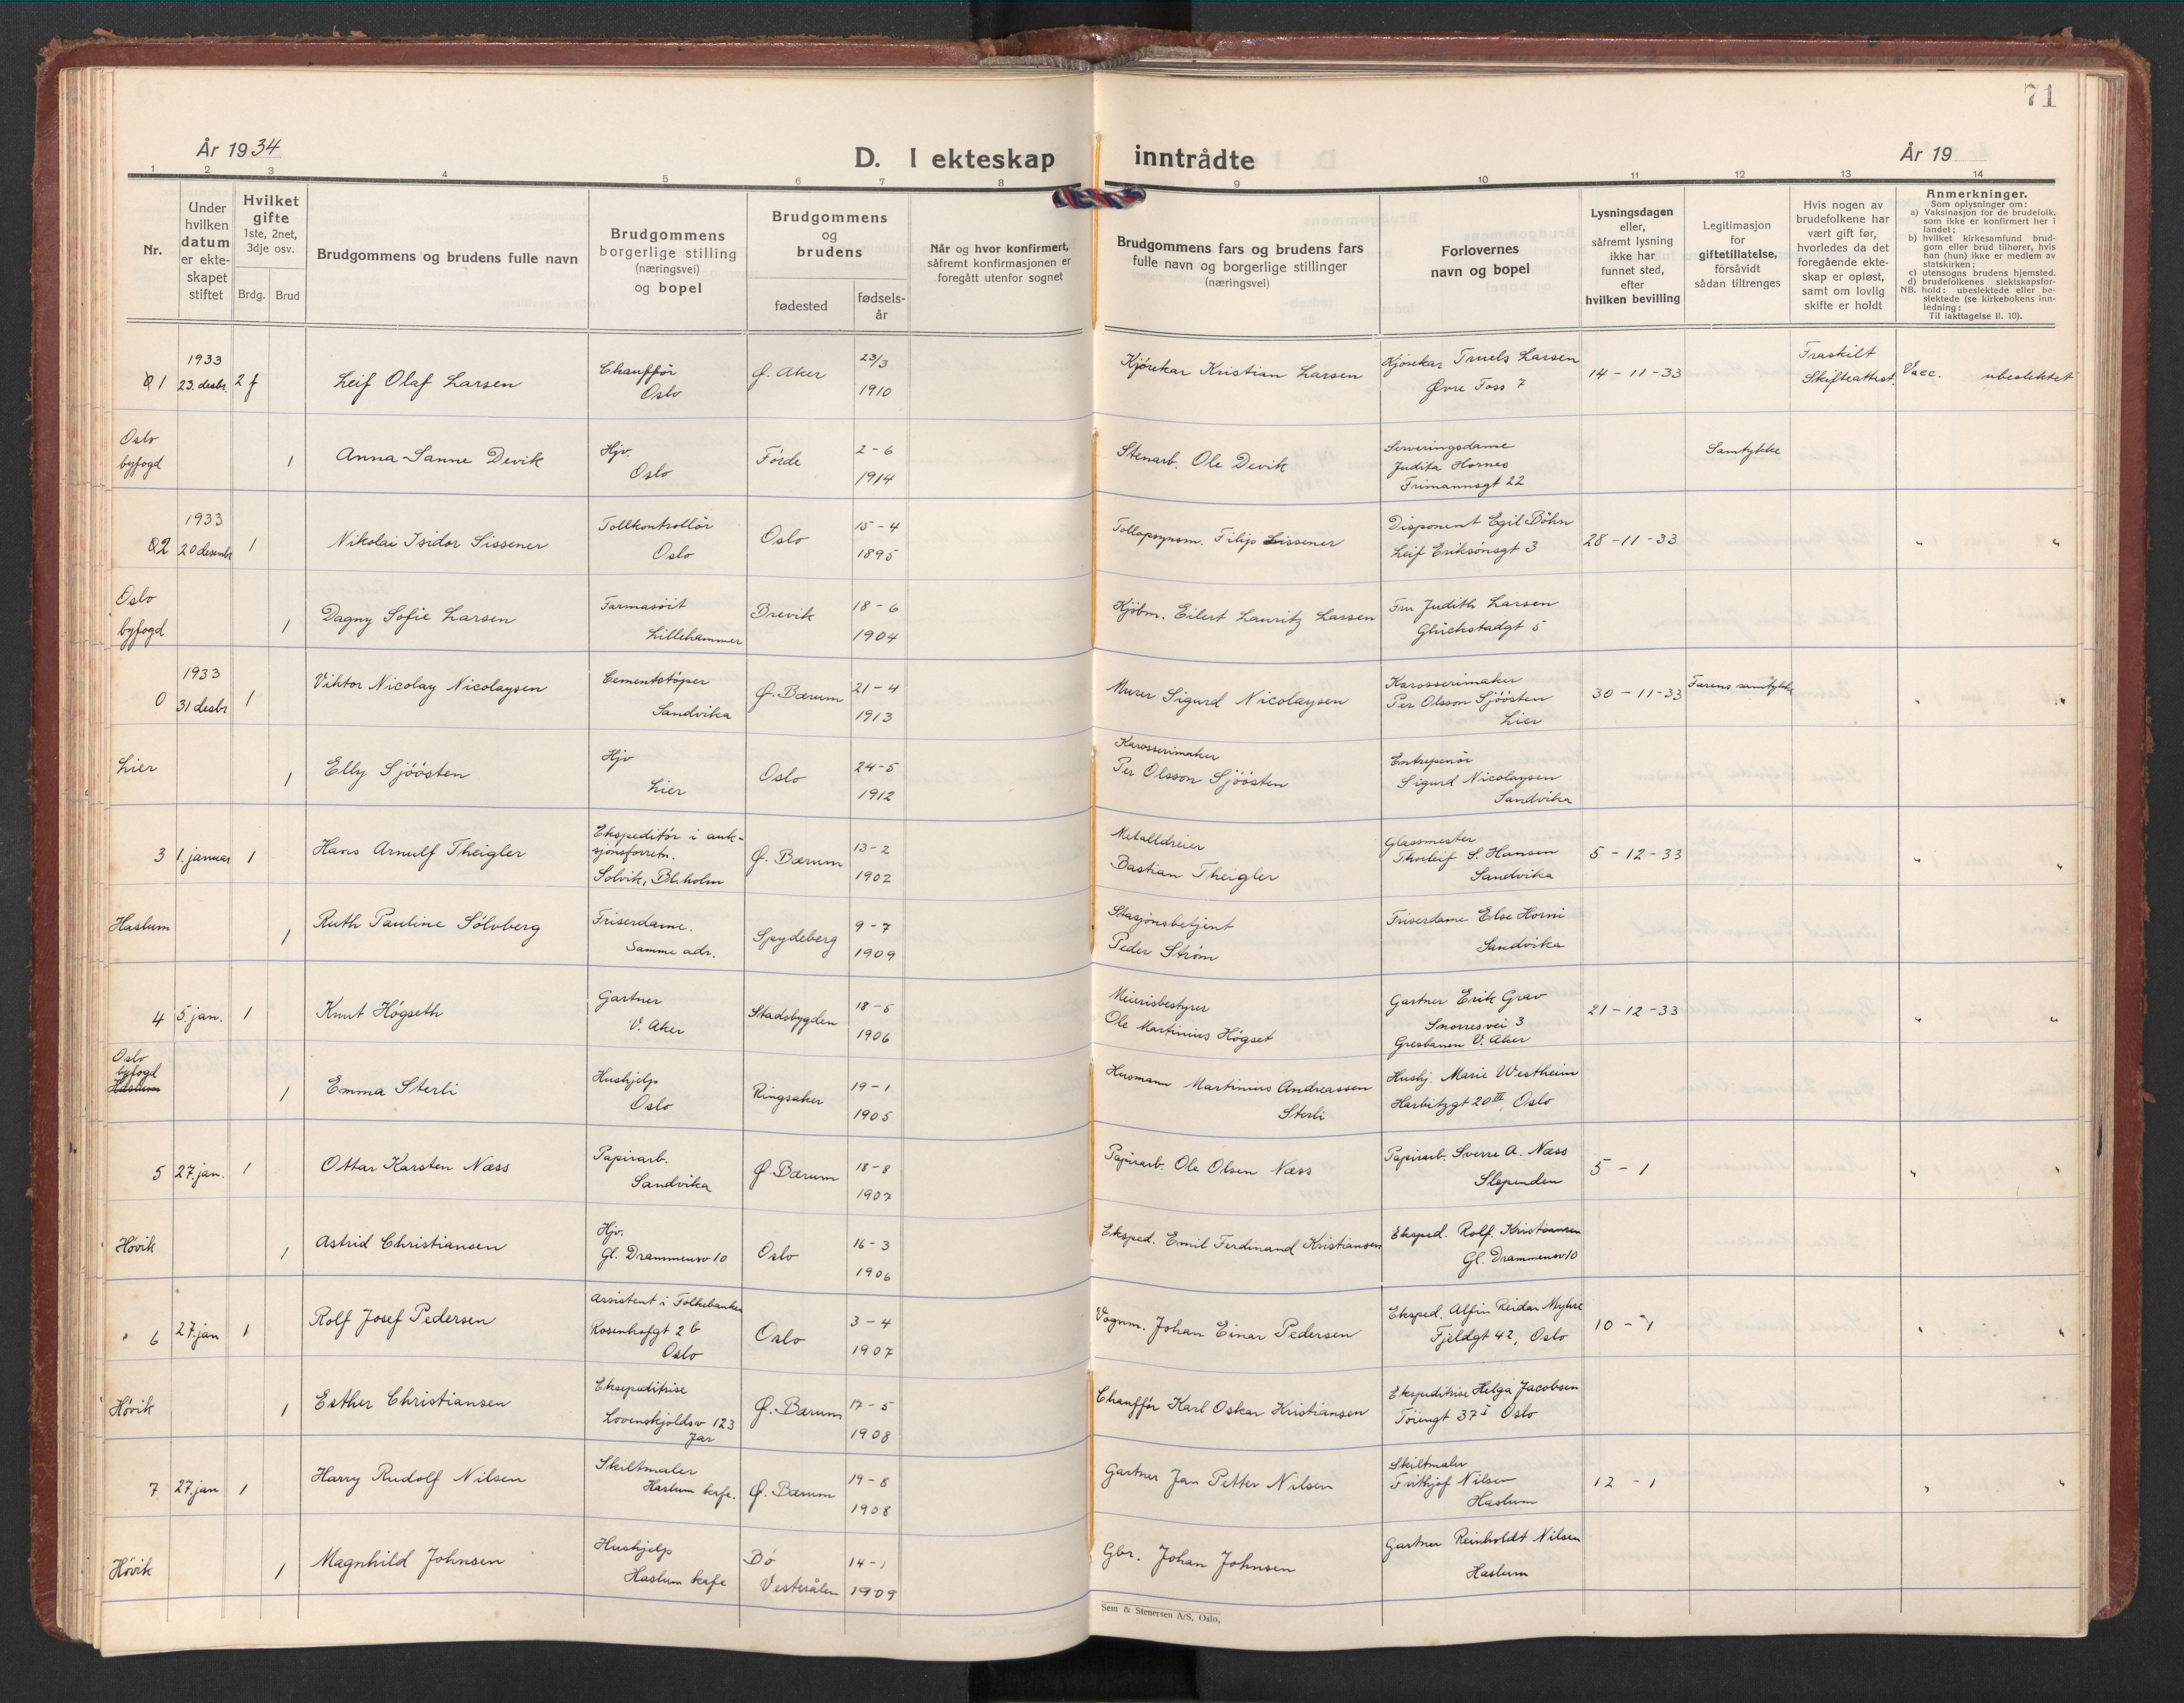 71
År 1934
D. I ekteskap inntrådte
År 19
1 2 3 4 5 6 7 8 9 10 11 12 13 14
Nr.
Under hvilken datum er ekteskapet stiftet
Hvilket gifte 1ste, 2net, 3dje osv.
Brdg. Brud
Brudgommens og brudens fulle navn
Brudgommens borgerlige stilling (næringsvei) og bopel
Brudgommens og brudens
fødested
fødsels-år
Når og hvor konfirmert, såfremt konfirmasjonen er foregått utenfor sognet
Brudgommens fars og brudens fars fulle navn og borgerlige stillinger (næringsvei)
Forlovernes navn og bopel
Lysningsdagen eller, såfremt lysning ikke har funnet sted, efter hvilken bevilling
Legitimasjon for giftetillatelse, försåvidt sådan tiltrenges
Hvis nogen av brudefolkene har vært gift før, hvorledes da det foregående ekteskap er opløst, samt om lovlig skifte er holdt
Anmerkninger.
Som oplysninger om:
a) Vaksinasjon for de brudefolk, som ikke er konfirmert her i landet;
b) hvilket kirkesamfund brudgom eller brud tilhører, hvis han (hun) ikke er medlem av statskirken;
c) utensogns brudens hjemsted.
d) brudefolkenes slektskapsforhold: ubeslektede eller beslektede (se kirkebokens innledning:
NB.
Til iakttagelse II. 10).
1 1933 23. desbr. 2 f Leif Olaf Larsen Chauffør Oslo Ø. Aker 23/3 1910 Kjørekar Kristian Larsen Kjørekar Truels Larsen Øvre Foss 7 14-11-33 Fraskilt Skifteattest. Vacc. ubeslektet
Oslo byfogd 1 Anna Sanne Devik Hjv. Oslo Førde 2-6 1914 Stenarb. Ole Devik Serveringsdame Judita Hornes Frimannsgt 22 Samtykke
2 1933 20 desembr 1 Nikolai Isidor Sissener Tollkontrollör Oslo Oslo 15-4 1895 Tollopsynsm. Filip Sissener Disponent Egil Böhn Leif Eriksönsgt 3 28-11-33 " "
Oslo byfogd 1 Dagny Sofie Larsen Farmasöit Lillehammer Brevik 18-6 1904 Kjöbm. Eilert Lauritz Larsen Fru Judith Larsen Glückstadgt 5
0 1933 31 desbr 1 Viktor Nicolay Nicolaysen Cementstøper Sandvika Ø. Bærum 21-4 1913 Murer Sigurd Nicolaysen Karosserimaker Per Olsson Sjöösten Lier 30-11-33 Farens samtykke " "
Lier 1 Elly Sjöösten Hjv Lier Oslo 24-5 1912 Karosserimaker Per Olsson Sjöösten Entrepenör Sigurd Nicolaysen Sandvika
3 1. januar 1 Hans Arnulf Theigler Ekspeditør i auksjonsforretn. Solvik, Bl.holm Ø. Bærum 13-2 1902 Metalldreier Bastian Theigler Glassmester Thorleif S. Hansen Sandvika 5-12-33 " "
Haslum 1 Ruth Pauline Sølvberg Friserdame. Samme adr. Spydeberg 9-7 1909 Stasjonsbetjent Peder Strøm Friserdame Else Horni Sandvika
4 5. jan. 1 Knut Høgseth Gartner V. Aker Stadsbygden 18-5 1906 Meieribestyrer Ole Martinius Høgset Gartner Erik Grav Snorresvei 3 Gresbanen V. Aker 21-12-33 " "
Oslo byfogd Haslum 1 Emma Sterli Hushjelp Oslo Ringsaker 19-1 1905 Husmann Martinius Andreassen Sterli Hushj. Marie Westheim Harbitzgt 20 III, Oslo
5 27. jan. 1 Ottar Karsten Næss Papirarb. Sandvika Ø. Bærum 18-8 1907 Papirarb. Ole Olsen Næss Papirarb. Sverre A. Næss Slependen 5-1 " "
Hövik 1 Astrid Christiansen Hjv. Gl. Drammensv 10 Oslo 16-3 1906 Eksped. Emil Ferdinand Kristiansen Eksped. Rolf Kristiansen Gl. Drammensv 10
6 27. jan 1 Rolf Josef Pedersen Assistent i Folkebanken Rosenhofgt 2 b Oslo Oslo 3-4 1907 Vognm. Johan Einar Pedersen Eksped. Alfin Reidar Myhre Fjeldgt 42, Oslo 10-1 " "
Hövik 1 Esther Christiansen Ekspeditrise Lovenskjoldsv 123 Jar Ø. Bærum 17-5 1908 Chauffør Karl Oskar Kristiansen Ekspeditrise Helga Jacobsen Töiengt 37 I Oslo
7 27. jan 1 Harry Rudolf Nilsen Skiltmaler Haslum krfe. Ø. Bærum 19-8 1908 Gartner Jan Petter Nilsen Skiltmaler Frithjof Nilsen Haslum 12-1 " "
Hövik 1 Magnhild Johnsen Hushjelp Haslum krfe Bö Vesterålen 14-1 1909 Gbr. Johan Johnsen Gartner Reinholdt Nilsen Haslum
Sem & Stenersen A/S, Oslo,